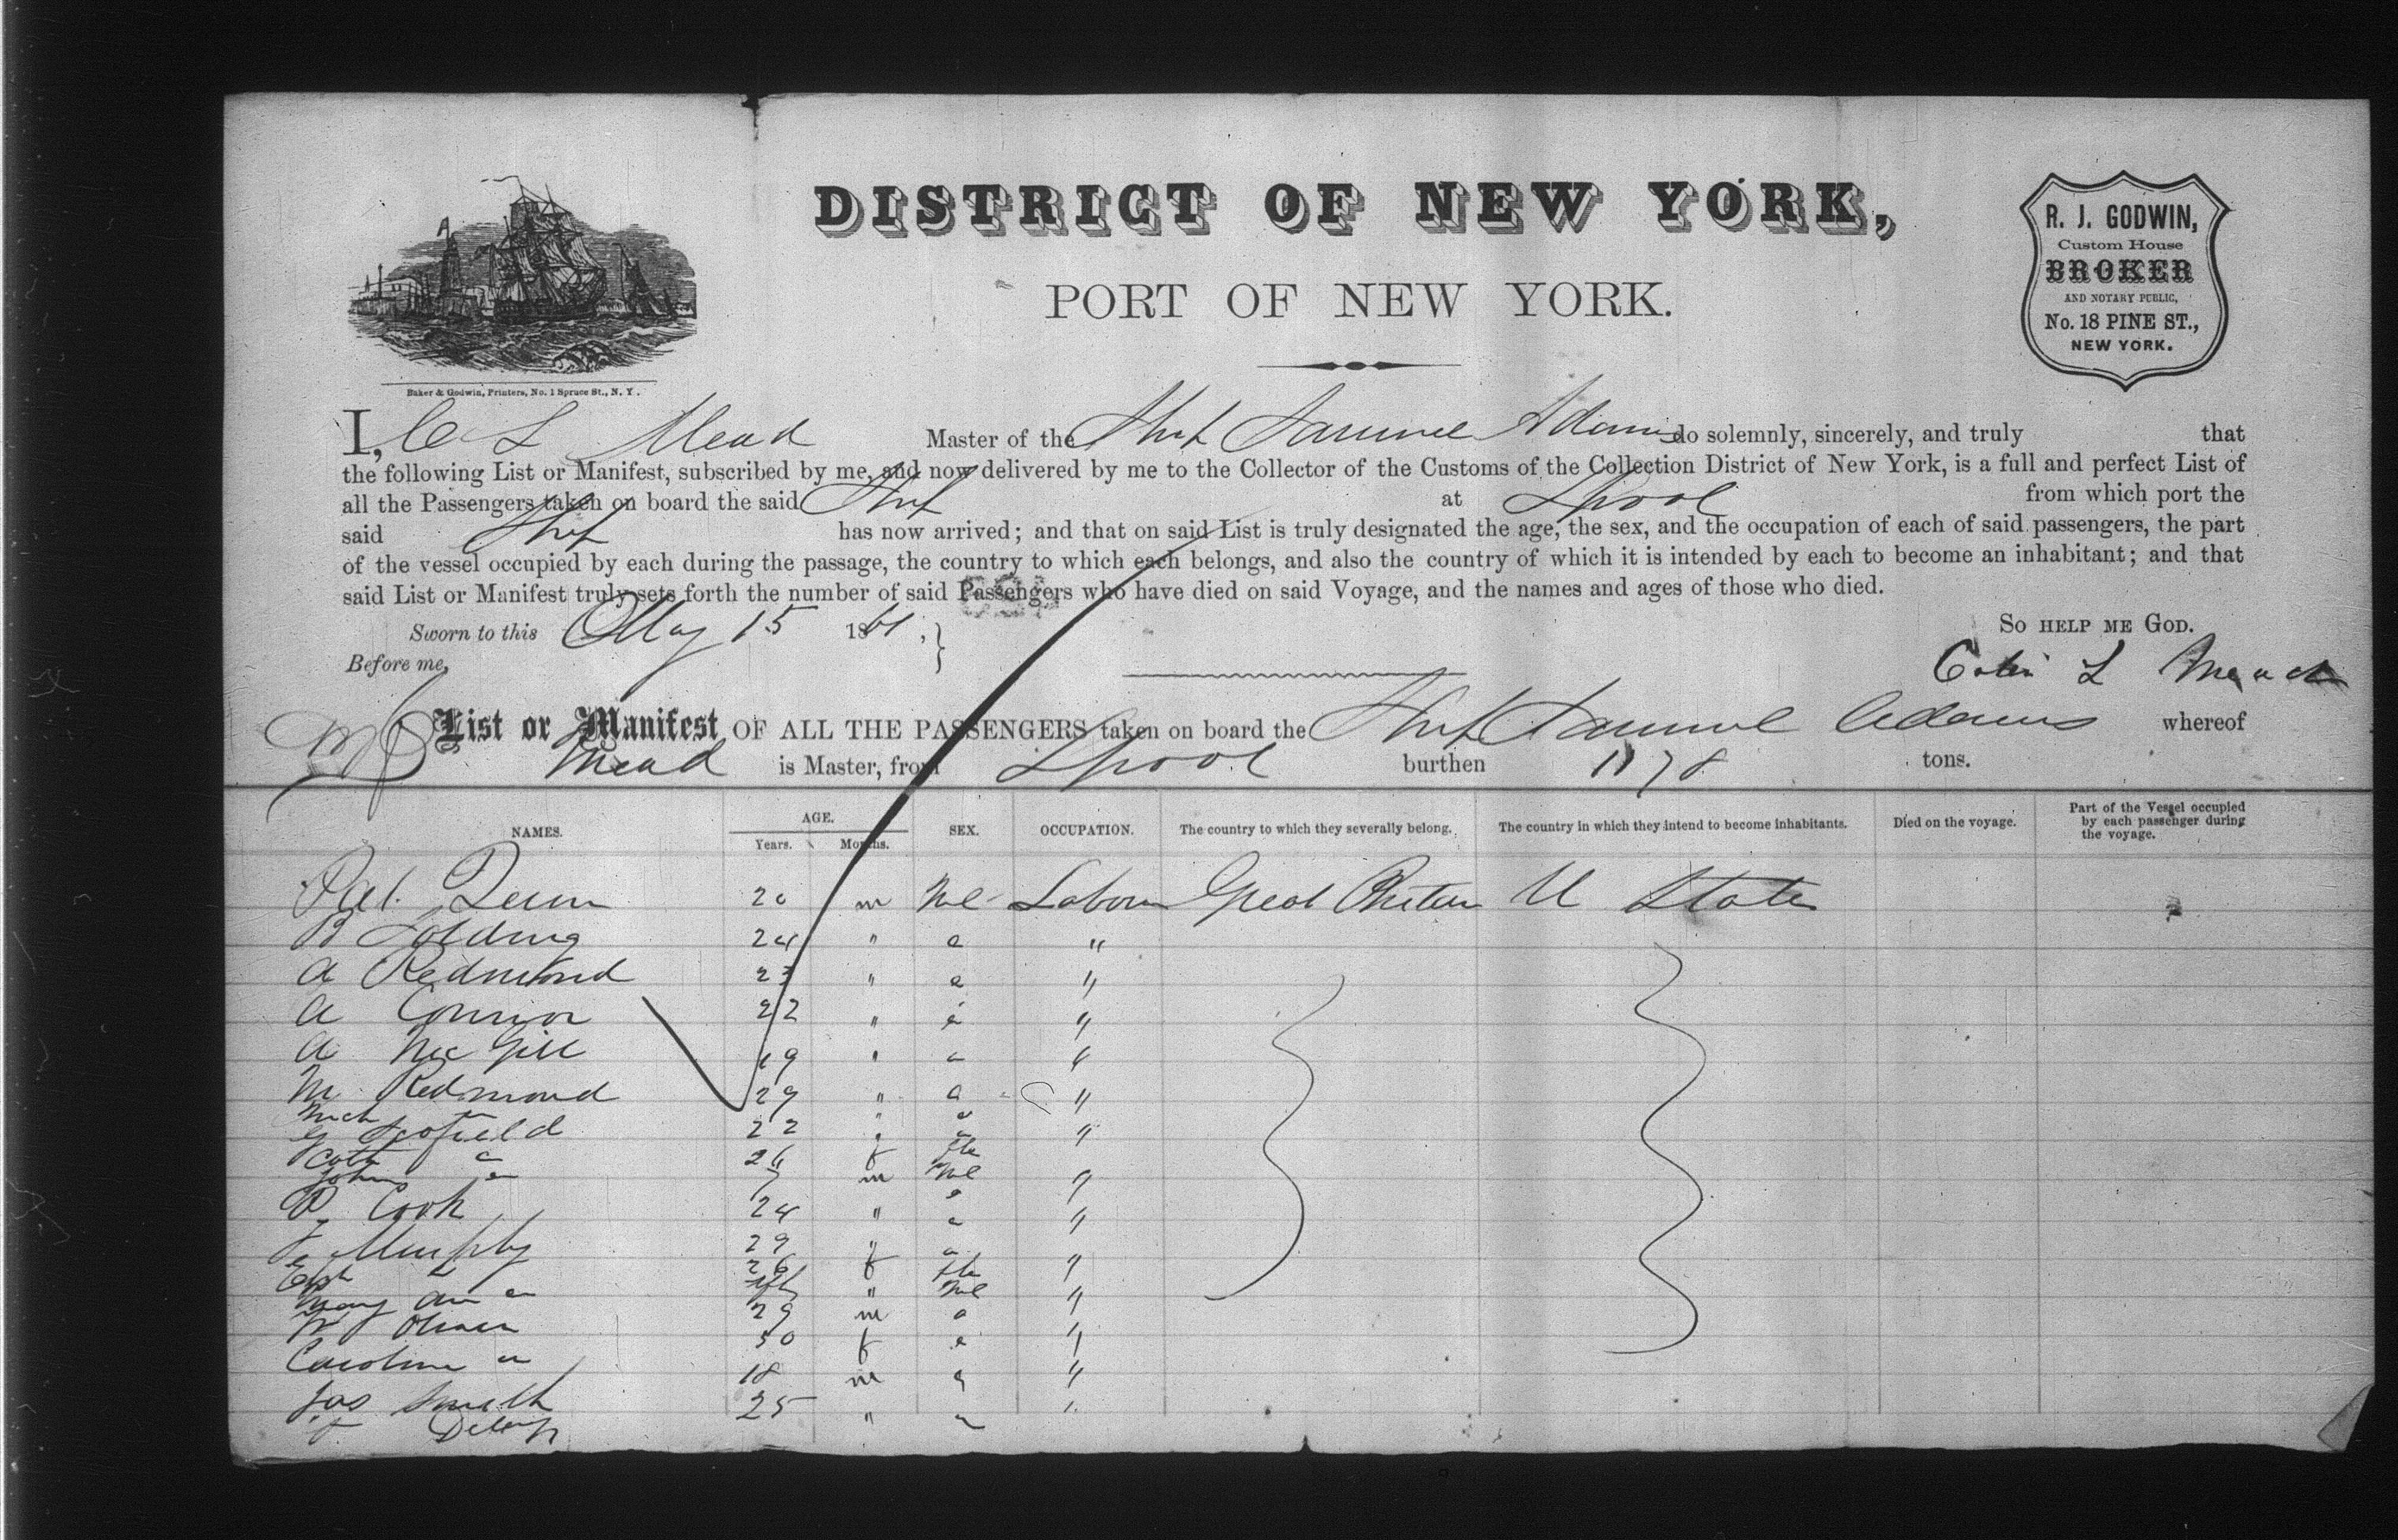 DISTRICT OF NEW YORK,
PORT OF NEW YORK.
R. J. GODWIN,
Custom House
BROKER
AND NOTARY PUBLIC,
No. 18 PINE ST.,
NEW YORK.
Baker & Godwin, Printers, No. 1 Spruce St., N. Y.
I, C L Mead Master of the Ship Samuel Adams do solemnly, sincerely, and truly that
the following List or Manifest, subscribed by me, and now delivered by me to the Collector of the Customs of the Collection District of New York, is a full and perfect List of
all the Passengers taken on board the said Ship at Lpool from which port the
said Ship has now arrived; and that on said List is truly designated the age, the sex, and the occupation of each of said passengers, the part
of the vessel occupied by each during the passage, the country to which each belongs, and also the country of which it is intended by each to become an inhabitant; and that
said List or Manifest truly sets forth the number of said Passengers who have died on said Voyage, and the names and ages of those who died.
Sworn to this May 15 1861,
So help me God.
Before me,
L Mead
List or Manifest OF ALL THE PASSENGERS taken on board the Ship Samuel Adams whereof
Mead is Master, from Lpool burthen 1178 tons.
NAMES. AGE. Years. Months. SEX. OCCUPATION. The country to which they severally belong. The country in which they intend to become inhabitants. Died on the voyage. Part of the Vessel occupied by each passenger during the voyage.
Pat. 20 m Labour Great Britain U States
B Golding 24 " "
A Redmond 23 " "
A Connor 22 " "
A McGill 19 " "
M Redmond 29 " "
22 "
Cath 26 f
John m "
P Cook 24 " "
J Murphy 29 " "
26 f "
Mary Ann " "
29 m "
Caroline 30 f "
Jas Smith 18 m "
J 25 "